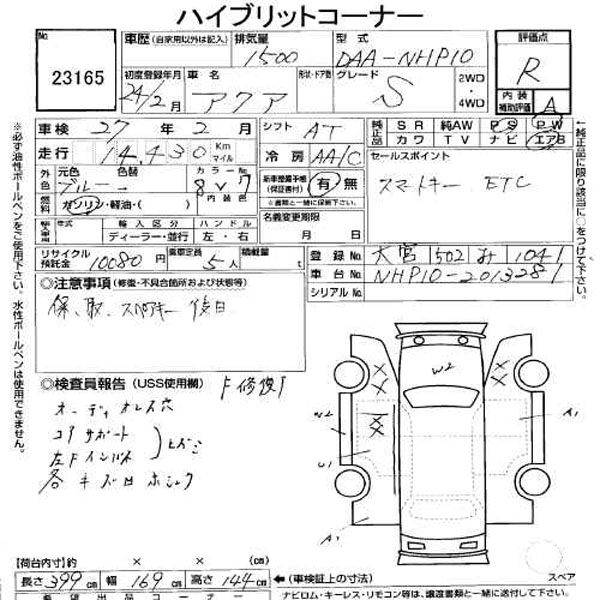 ハイブリットコーナー
No 23165
車歴 (自家用以外は記入) 排気量 1500 型式 DAA-NHP10
評価点 R
内装補助評価 A
初度登録年月 24/2月 車名 アクア 形状・ドア数 グレード S 2WD・4WD
車検 27年 2月 シフト AT
純正品 SR 純AW PS PW
カワ TV ナビ エアB
走行 14,430 Km マイル 冷房 AA/C
セールスポイント
スマートキー ETC
外元色 ブルー 色替 カラーNo 8V7 内装色
新車整備手帳(保証書付) 有・無
※書類と一緒に保管下さい
燃料 ガソリン・軽油・( )
名義変更期限 月 日
輸入車 年式 輸入区分 ディーラー・並行 ハンドル 左・右
リサイクル預託金 10080円 乗車定員 5人 積載量
登録No 大宮 502 み 1041
車台No NHP10-2013281
シリアルNo
◎注意事項 (修復・不具合箇所および状態等)
保、取、スペアキー 後日
◎検査員報告 (USS使用欄) 「修復」
オーディオレス穴
コアサポート
左Fインパネ
各キズ凹
W2
A1
U1
A1
W2
スペア
【荷台内寸】約 × × (cm)
長さ 399cm 幅 169cm 高さ 144cm ←(車検証上の寸法)
ナビロム・キーレス・リモコン等は、譲渡書類と一緒に送付して下さい。
希望出品コーナー
※必ず油性ボールペンをご使用下さい。水性ボールペンは使用不可。
←純正品に限り該当に○をつけて下さい。